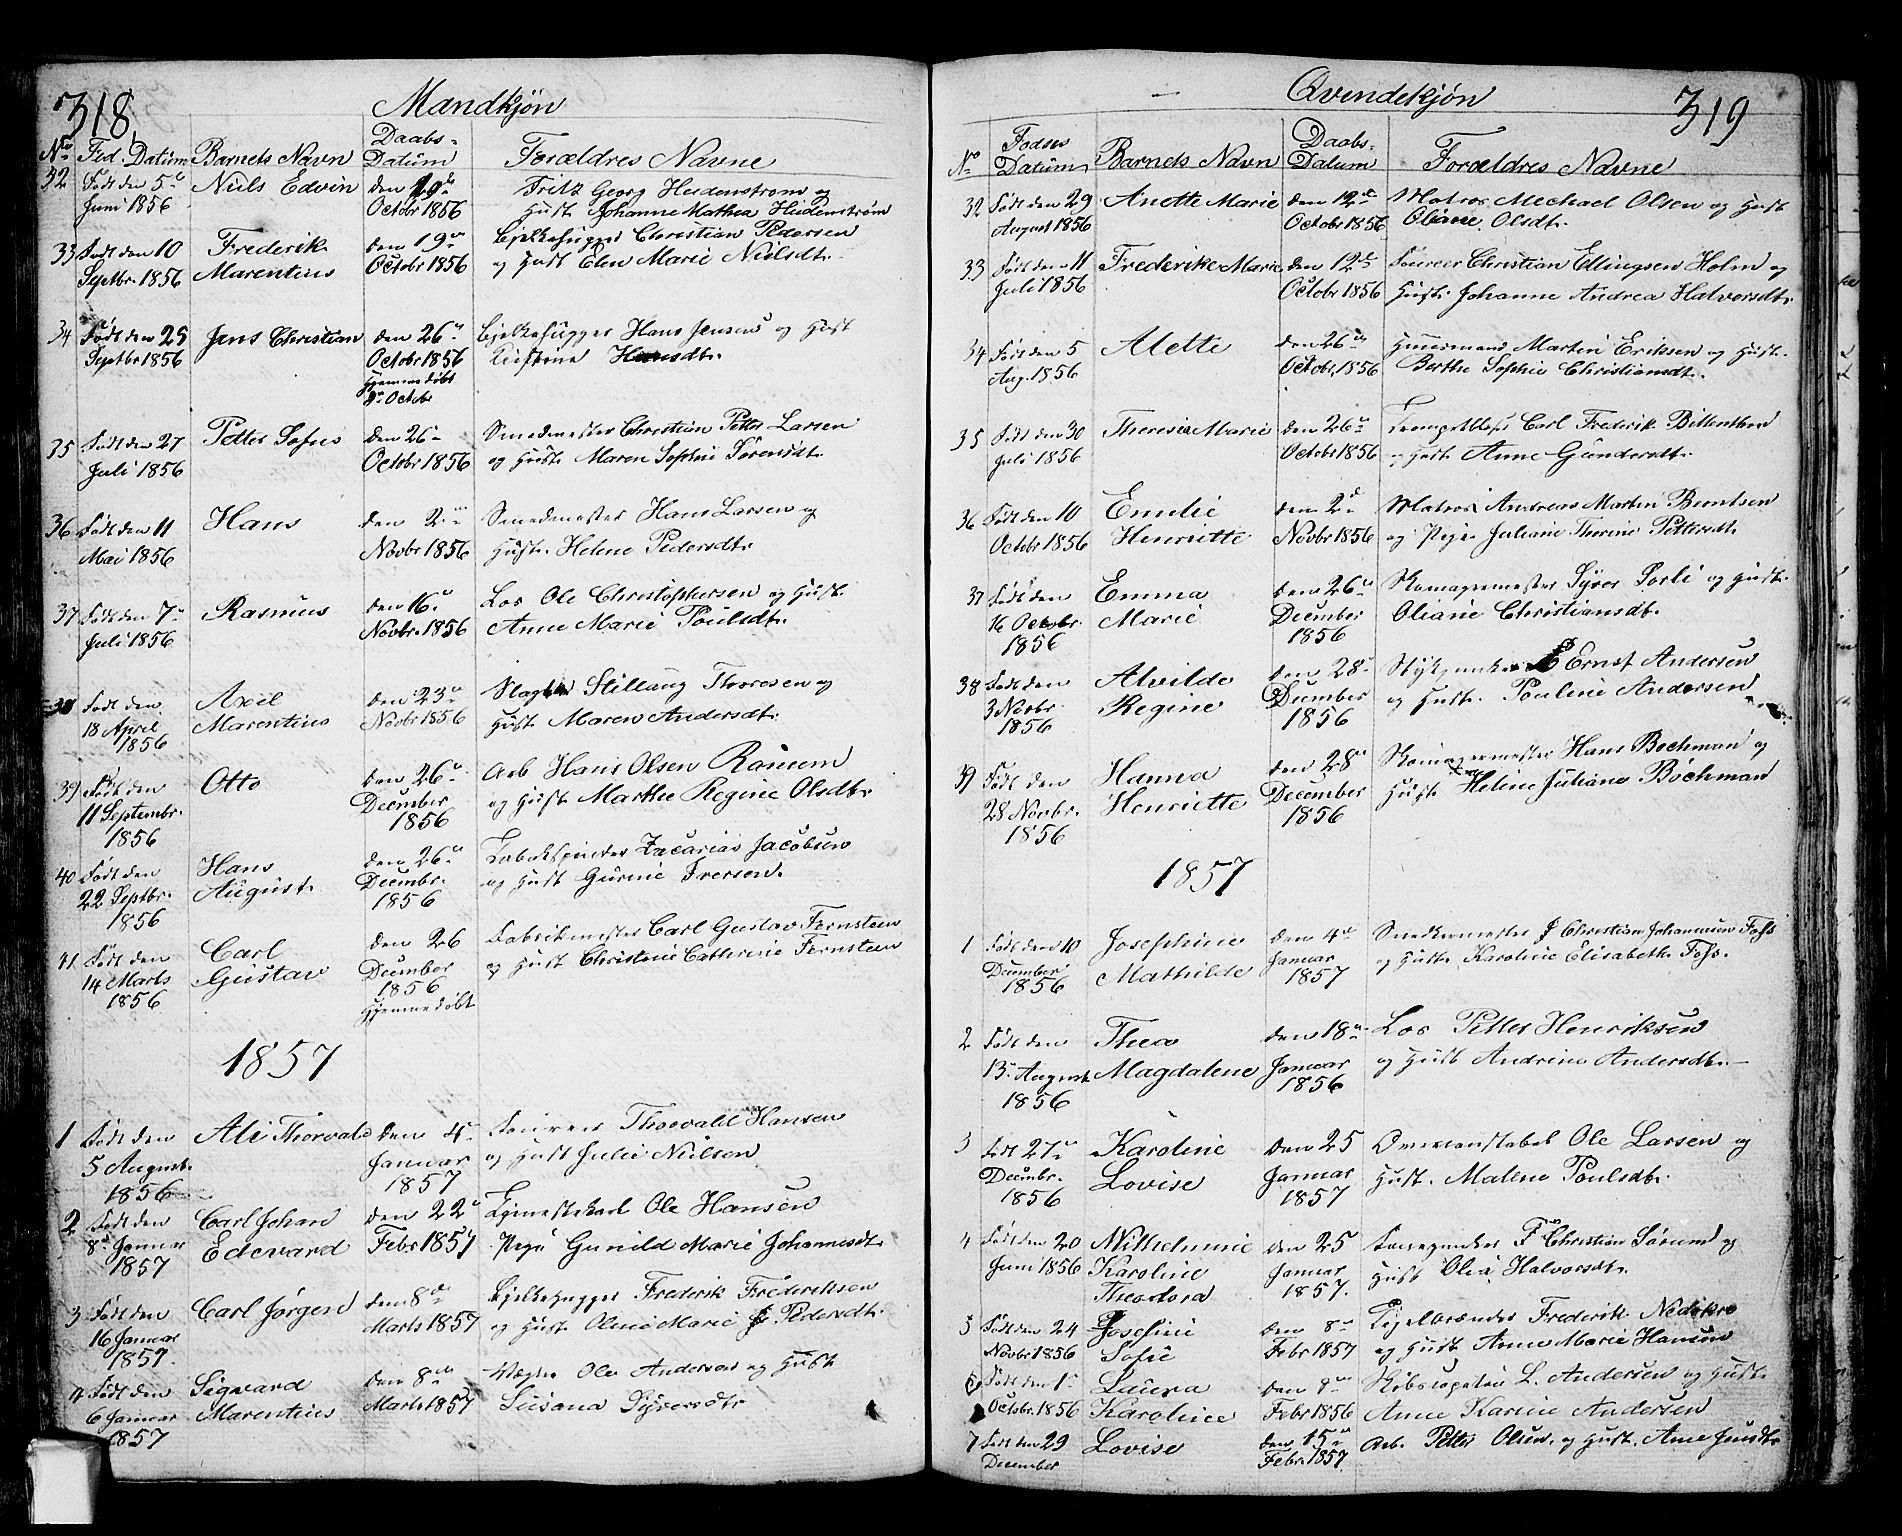 318.
Mandkjön
No. Fød. Datum Barnets Navn Daabs-Datum Forældres Navne
32 Født den 5te Juni 1856 Niels Edvin den 19de Octobr 1856 Fritz Georg Heidenstrøm og
Hust. Johanne Mathea Heidenstrøm
33 Født den 10 Septbr. 1856 Frederik Marentius den 19de Octobr 1856 Bjelkehugger Christian Pedersen
og Hust Elen Marie Nielsdt.
34 Født den 25 Septbr 1856 Jens Christian den 26de Octobr 1856 Hjemmedøbt Octobr Bjelkehugger Hans Jensen og Hust
Kirstine Hansdt.
35 Født den 27 Juli 1856 Petter Sofus den 26 Octobr 1856 Smedmester Christian Petter Larsen
og Hust. Maren Sophie Sørensdt.
36 Født den 11 Mai 1856 Hans den 2den Novbr 1856 Smedmester Hans Larsen og
Hust. Helene Pedersdt.
37 Født den 7de Juli 1856 Rasmus den 16de Novbr. 1856 Los Ole Christophersen og Hust.
Anne Marie Poulsdt.
38 Født den 18 April 1856 Axel Marentius den 23de Novbr 1856 Slagter Stillaug Thoresen og
Hust Maren Andersdt.
39 Født den 11 Septembr. 1856 Otto den 26de December 1856 Arb Hans Olsen Ramum
og Hust Marthe Regine Olsdt.
40 Født den 22 Septbr. 1856 Hans August. den 26de Decembr. 1856 Tobakspinder Zacarias Jacobsen
og Hust Gurine Iversen.
41 Født den 14 Marts 1856 Carl Gustav den 26 December 1856 Hjemmedøbt Fabrikmester Carl Gustav Fernsteen
og Hust Christine Cathrine Fernsteen
1857
1 Født den 5 August. 1856 Ali Thorvald den 4de Januar 1857 Thorvald Hansen
og Hust Julie Nielsen
2 Født den 8de Januar 1857 Carl Johan Edevard den 22de Febr 1857 Tjenestekarl Ole Hansen
Pige Gunild Marie Johannesdt.
3 Født den 16 Januar 1857. Carl Jørgen den 8de Marts 1857 Bjelkehugger Frederik Frederiksen
og Hust Oline Marie Pedersdt.
4 Født den 6 Januar 1857 Sigvard Marentius den 8de Marts 1857 Vægter Ole Andersen og Hust
Susana Syversdt.
319
Qvindekjön
No. Fødses Datum Barnets Navn Daabs-Datum Forældres Navne
32 Født den 29 August 1856 Anette Marie den 12de Octobr 1856 Matros Mechael Olsen og Hust
Oliane Olsdt.
33 Født den 11 Juli 1856 Frederike Marie den 12de Octobr 1856 Christian Ellingsen Holm og
Hust. Johanne Andrea Halvorsdt.
34 Født den 5 Aug. 1856 Alette den 26de Octobr. 1856 Huusmand Martin Eriksen og Hust.
Berthe Sophie Christiansdt.
35 Født den 30 Juli 1856 Theresia Marie den 26de Octobr 1856 Carl Frederik
og Hust Anne Gundersdt.
36 Født den 10 Octobr 1856 Emilie Henriette den 2de Novbr 1856 Matros Andreas Martin Berntsen
og Pige Juliane Thorine Pettersdt.
37 Født den 16 Octobr. 1856 Emma Marie den 26de December 1856 Skomagermester Syver Sorli og Hust.
Oliane Christiansdt.
38 Født den 3 Novbr. 1856 Alvilde Regine den 28de December 1856 Ernst Andersen
og Hust. Pouline Andersen
39 Født den 28 Novbr. 1856 Hanna Henriette den 28de December 1856 Skomagermester Hans Bochman og
Hust. Heline Juliane Bochman
1857
1 Født den 10 December 1856 Josephine Mathilde den 4de Januar 1857 Snedkermester Christian Johannsen Fohs
og Hust. Karoline Elisabeth Fohs.
2 Født den 13 August 1856 Thea Magdalene den 18de Januar 1856 Los Petter Henriksen
og Hust Andrine Andersdt.
3 Født 27de Decembr. 1856 Karoline Lovise den 25 Januar 1857 Ole Larsen og
Hust. Malene Poulsdt.
4 Født den 20 Juni 1856 Wilhelmine Karoline Theodora den 25 Januar 1857. Christian Sørum og
Hust Olia Halvorsdt.
5 Født den 24 Novbr 1856 Josefine Sofie den 8de Febr 1857 Tegelbrænder Frederik Nedekro
og Hust Anne Marie Hansen
6 Født den 1te Octobr. 1856 Laura Karoline den 8de Febr 1856 L. Andersen og Hust.
Anne Karine Andersen
7 Født den 29 December Lovise den 15de Febr. 1857 Arb. Petter Olsen og Hust.